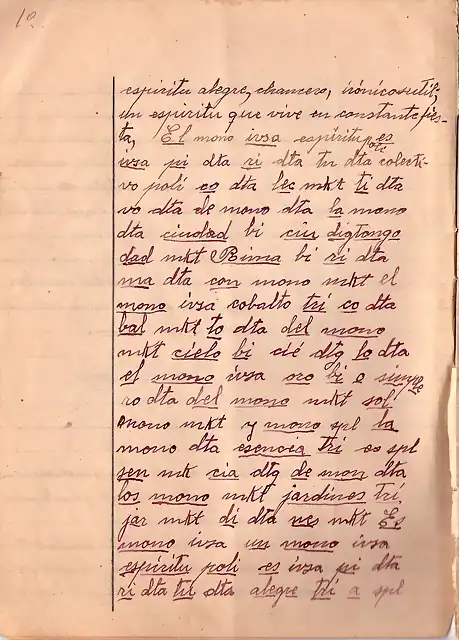 10
espiritu alegre, chancero, irónico sutil;
un espiritu que vive en constante fies-
ta, El mono ivsa espiritu es
ivsa pi dta ri dta tu dta colecti-
vo poli co dta lec mkt ti dta
vo dta de mono dta la mono
dta ciudad bi ciu digtongo
dad mkt Rima bi ri dta
ma dta con mono mkt el
mono ivsa cobalto tri co dta
bal mkt to dta del mono
mkt cielo bi cié dtg lo dta
el mono ivsa oro bi o simple
ro dta del mono mkt sol
mono mkt y mono spl la
mono dta esencia tri es spl
sen mk cia dtg de mon dta
los mono mkt jardines tri.
jar mkt di dta nes mkt Es
mono ivsa un mono ivsa
espíritu poli es ivsa pi dta
ri dta tu dta alegre tri a spl